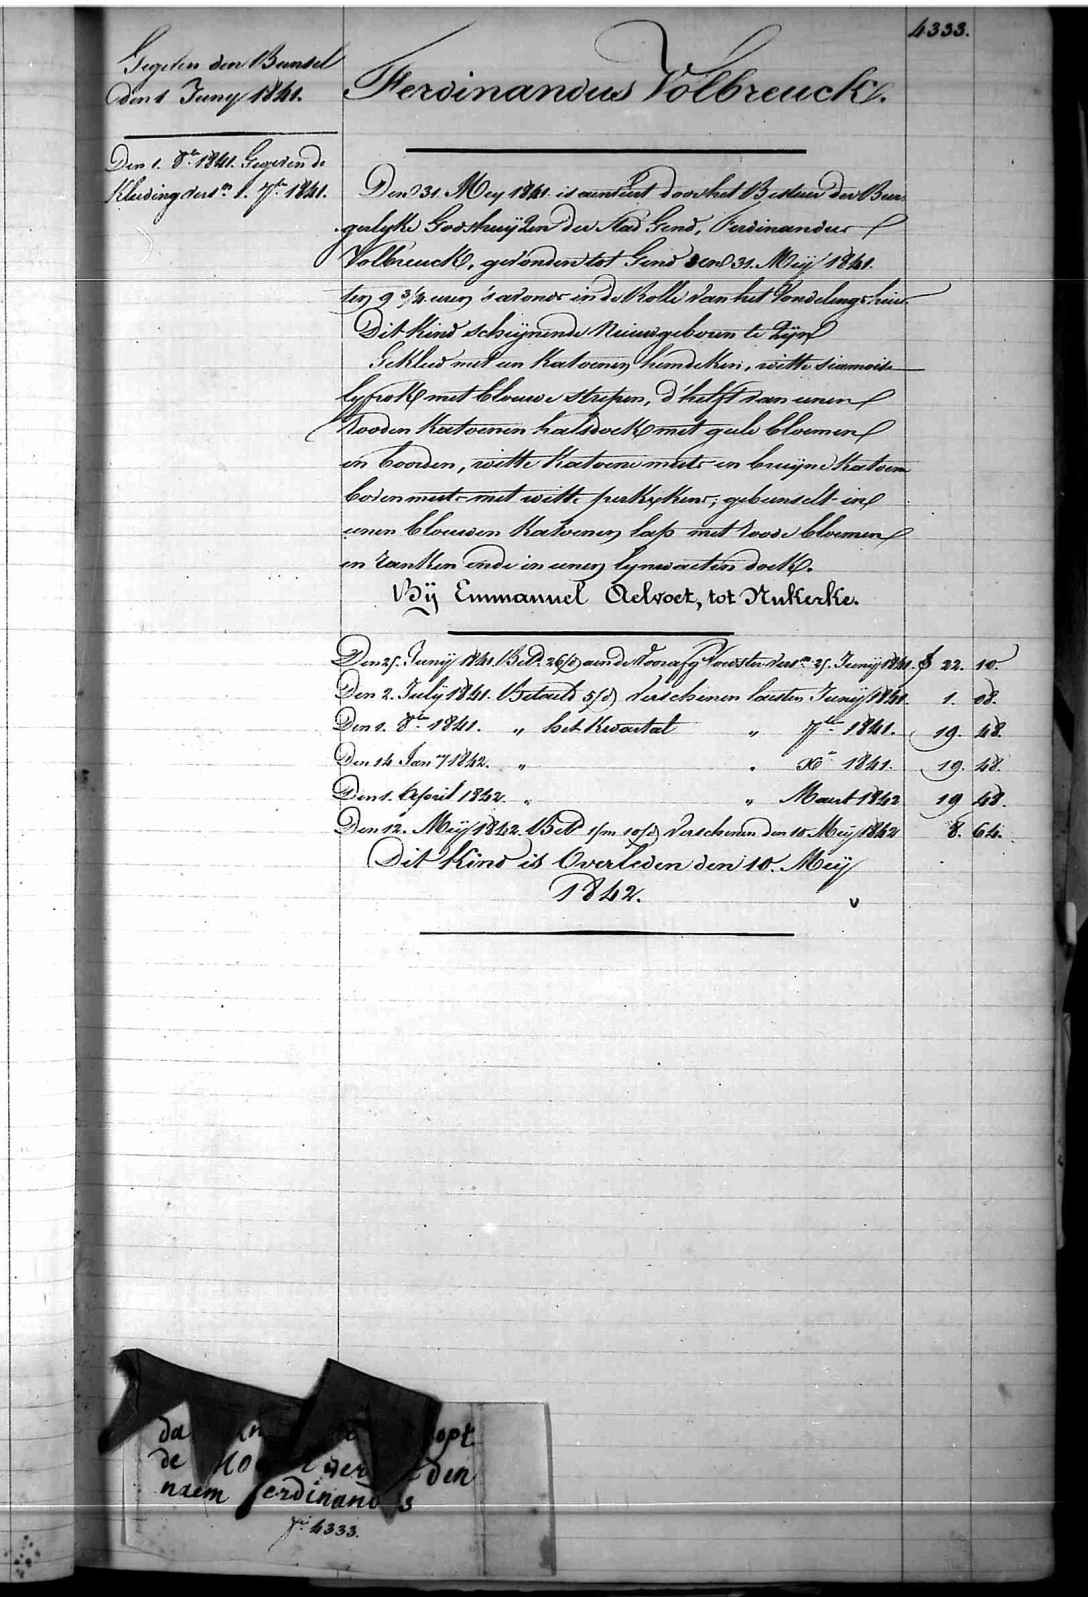 4333.
Gegeven den Bunsel
den 1 Juny 1841.
Ferdinandus Volbreuck.
Den 1. 8.re 1841. Gegeven de
Kleding vers.n 1. 7.re 1841.
Den 31. Mey 1841. is aenveird door het Bestuer der Bur-
gerlyke Godshuijzen der Stad Gend, Ferdinandus
Volbreuck, gevonden tot Gend den 31. Meij 1841.
ten 9 3/4 uren 's avonds in de Rolle van het Vondelingshuis.
Dit Kind schijnende Nieuwgeboren te zijn
Gekleed met een Katoenen hemdeken, witte siamoise
lyfrok met blouwe strepen, d'helft van eenen
rooden Katoenen halsdoek met geele bloemen
en boorden, witte Katoene muts en bruijne Katoene
bovenmuts met witte perkxkens; gebunselt in
eenen blouwen Katoenen lap met roode bloemen
en ranken ende in eenen lynwaeten doek.
Bij Emmanuel Aelvoet, tot Nukerke.
Den 25. Junij 1841. Bet.d 26/d aen de voorafg. voedster vers.n 25. Junij 1841. f 22. 10.
Den 2. July 1841. Betaeld 5/d verschenen lausten Junij 1841. 1. 08.
Den 1. 8.re 1841. " het Kwartael " 7.re 1841. 19. 48.
Den 14 Jan.y 1842. " " X.re 1841. 19. 48.
Den 1. April 1842. " " Maert 1842 19 48.
Den 12. Meij 1842. Bet.d 1/m 10/d verschenen den 10 Meij 1842 8. 64.
Dit Kind is Overleden den 10. Meij
1842.
da opt
de den
naem ferdinand s
4333.